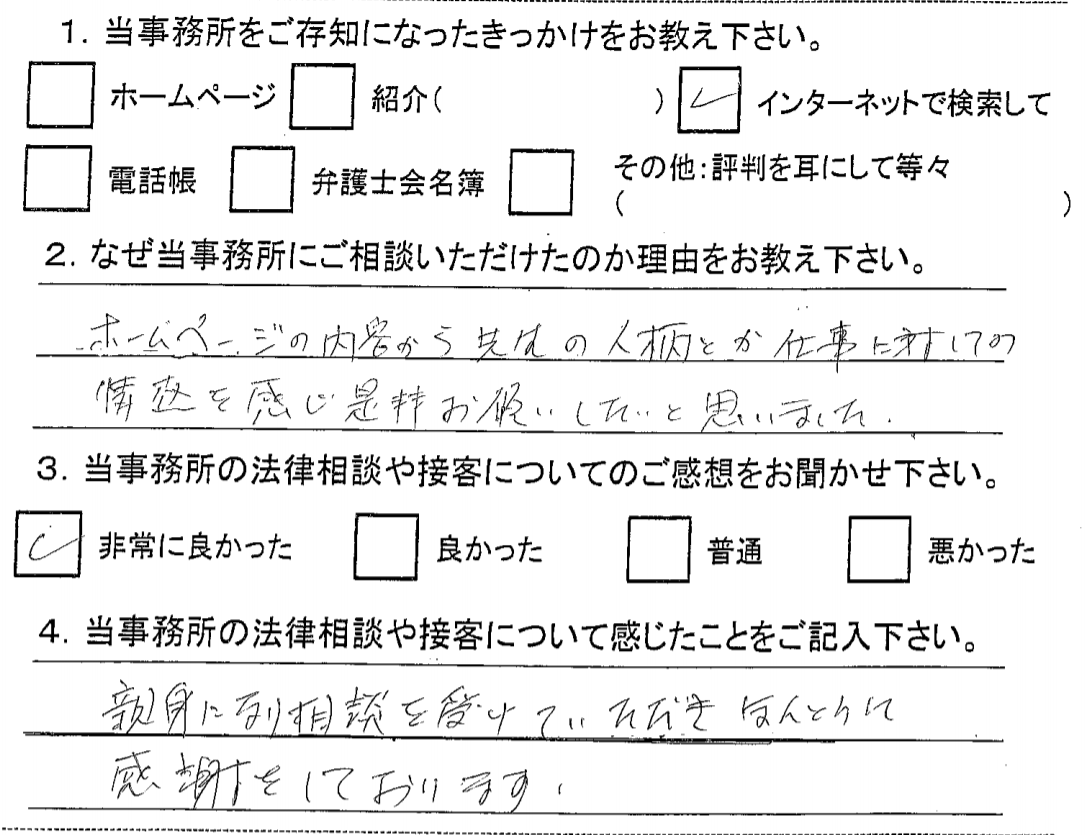 1. 当事務所をご存知になったきっかけをお教え下さい。
ホームページ 紹介( ) インターネットで検索して
電話帳 弁護士会名簿 その他:評判を耳にして等々
( )
2. なぜ当事務所にご相談いただけたのか理由をお教え下さい。
ホームページの内容から先生の人柄とか仕事に対しての
情熱を感じ是非お願いしたいと思いました.
3. 当事務所の法律相談や接客についてのご感想をお聞かせ下さい。
非常に良かった 良かった 普通 悪かった
4. 当事務所の法律相談や接客について感じたことをご記入下さい。
親身になり相談を受けていただき ほんとうに
感謝をしております.